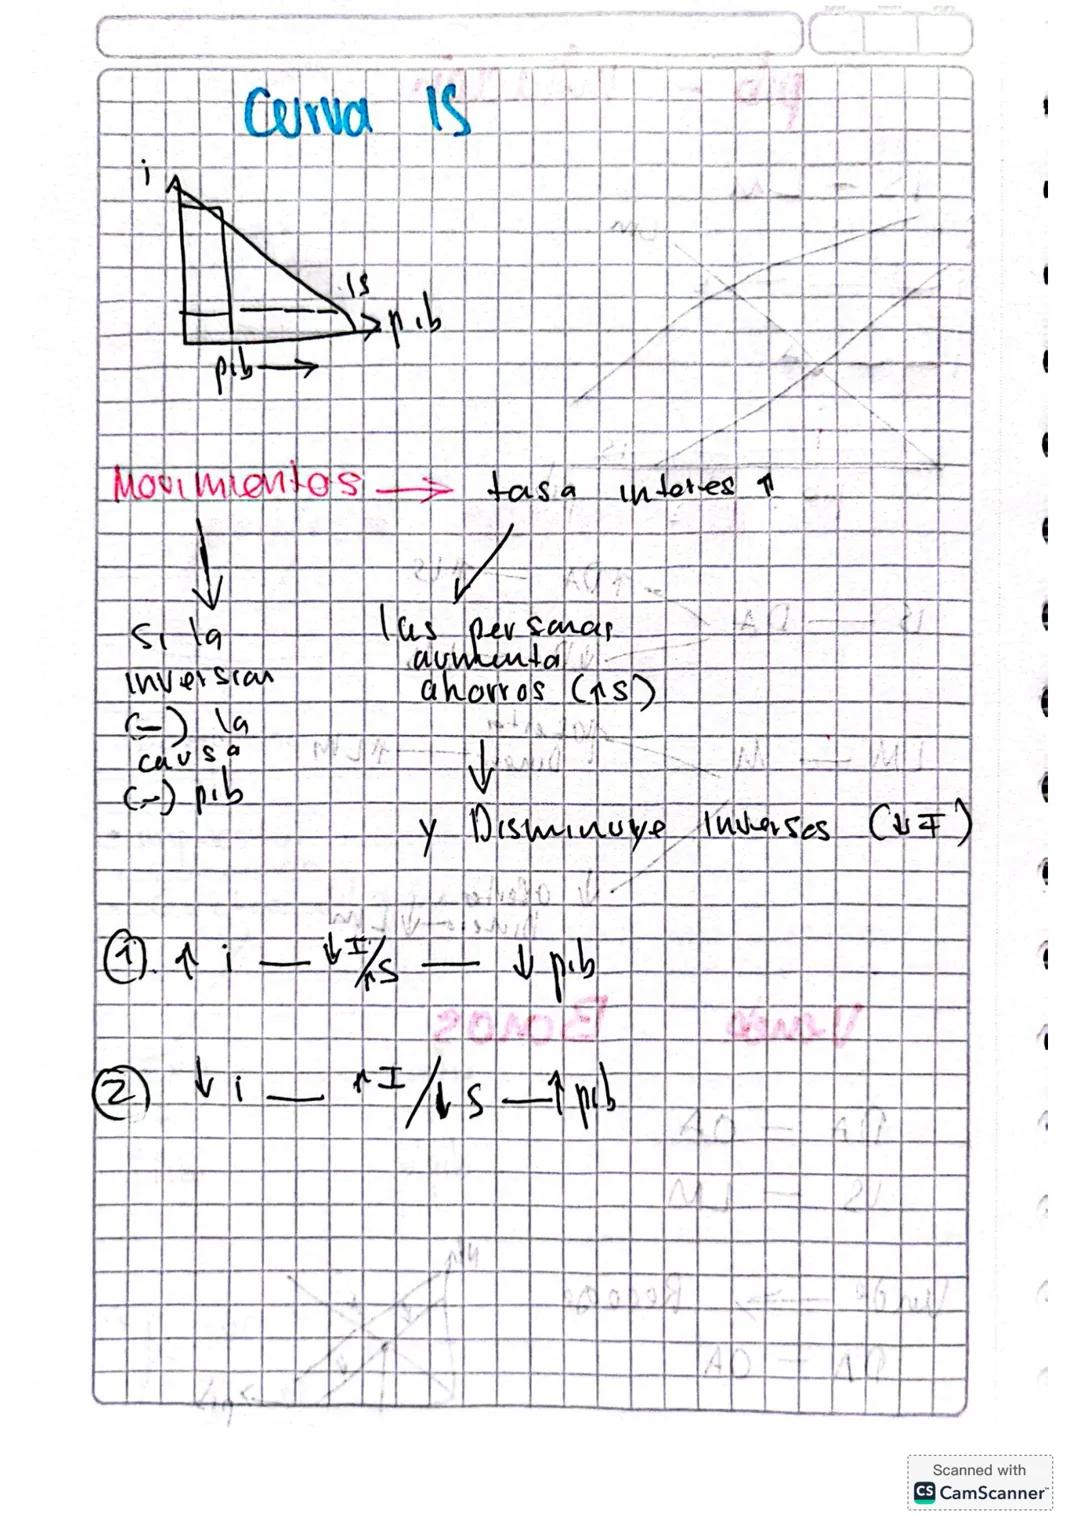 Curva IS
i
IS
pib
pib →
Movimientos → tasa interes ↑
Si la
inversion
(-) la
causa
(-) pib
las personas
aumenta
ahorros (↑S)
y Disminuye Inverses (↓I)
① ↑ i — ↓I/↑S — ↓ pib
② ↓ i — ↑I/↓S — ↑ pib
Scanned with
CS CamScanner